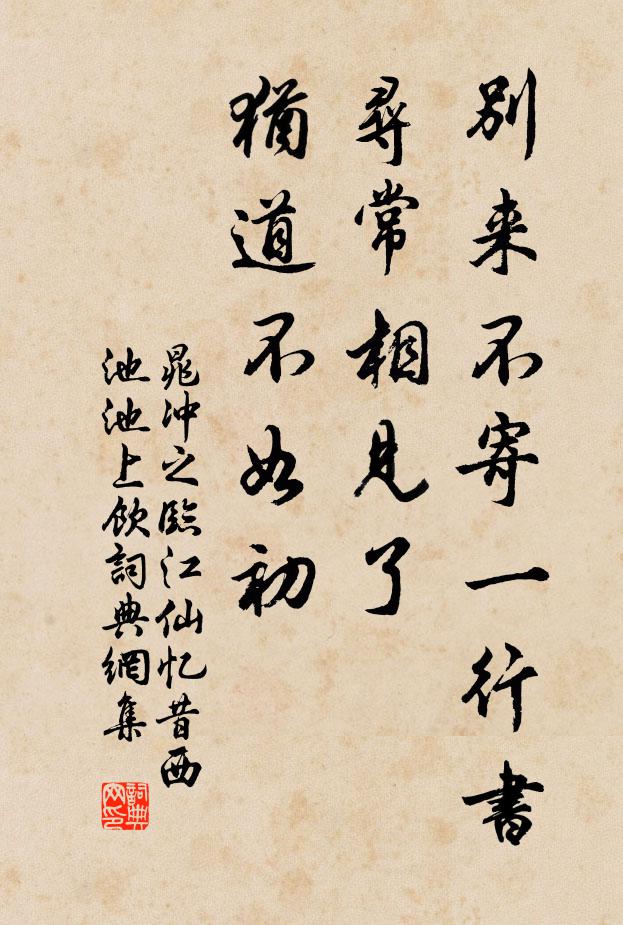 别来不寄一行書
尋常相見了
猶道不如初
晁冲之臨江仙忆昔西
池池上飲詞典網集
詞典
网印